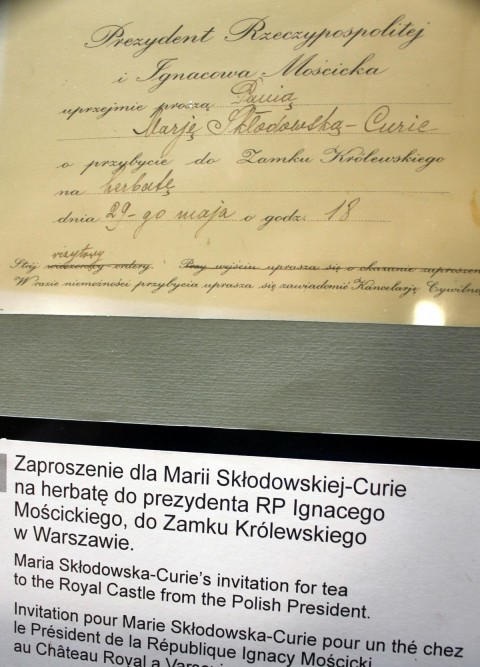 Prezydent Rzeczypospolitej
i Ignacowa Mościcka
uprzejmie proszą Panią
Marję Skłodowską-Curie
o przybycie do Zamku Królewskiego
na herbatę
dnia 29-go maja o godz. 18
wizytowy
Strój wieczorowy ordery. Przy wejściu uprasza się o okazanie zaproszen
W razie niemożności przybycia uprasza się zawiadomić Kancelarję Cywilną
Zaproszenie dla Marii Skłodowskiej-Curie
na herbatę do prezydenta RP Ignacego
Mościckiego, do Zamku Królewskiego
w Warszawie.
Maria Skłodowska-Curie's invitation for tea
to the Royal Castle from the Polish President.
Invitation pour Marie Skłodowska-Curie pour un thé chez
le Président de la République Ignacy Mościcki
au Château Royal a Varsovie